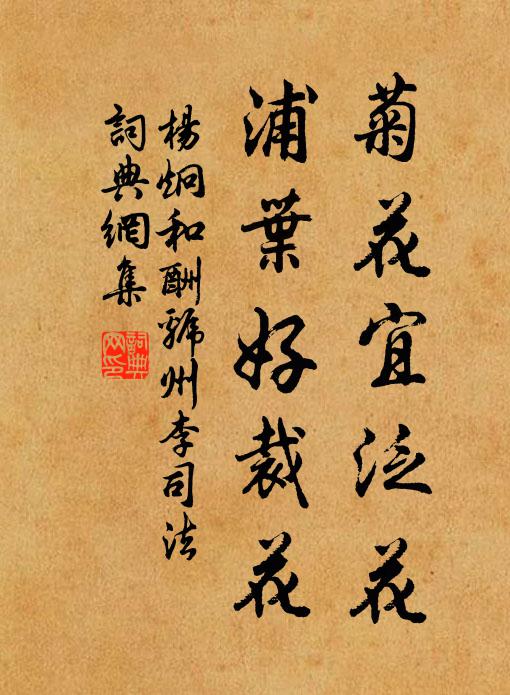 菊花宜泛花
浦葉好裁花
楊炯和酬虢州李司法
詞典網集
詞典网印